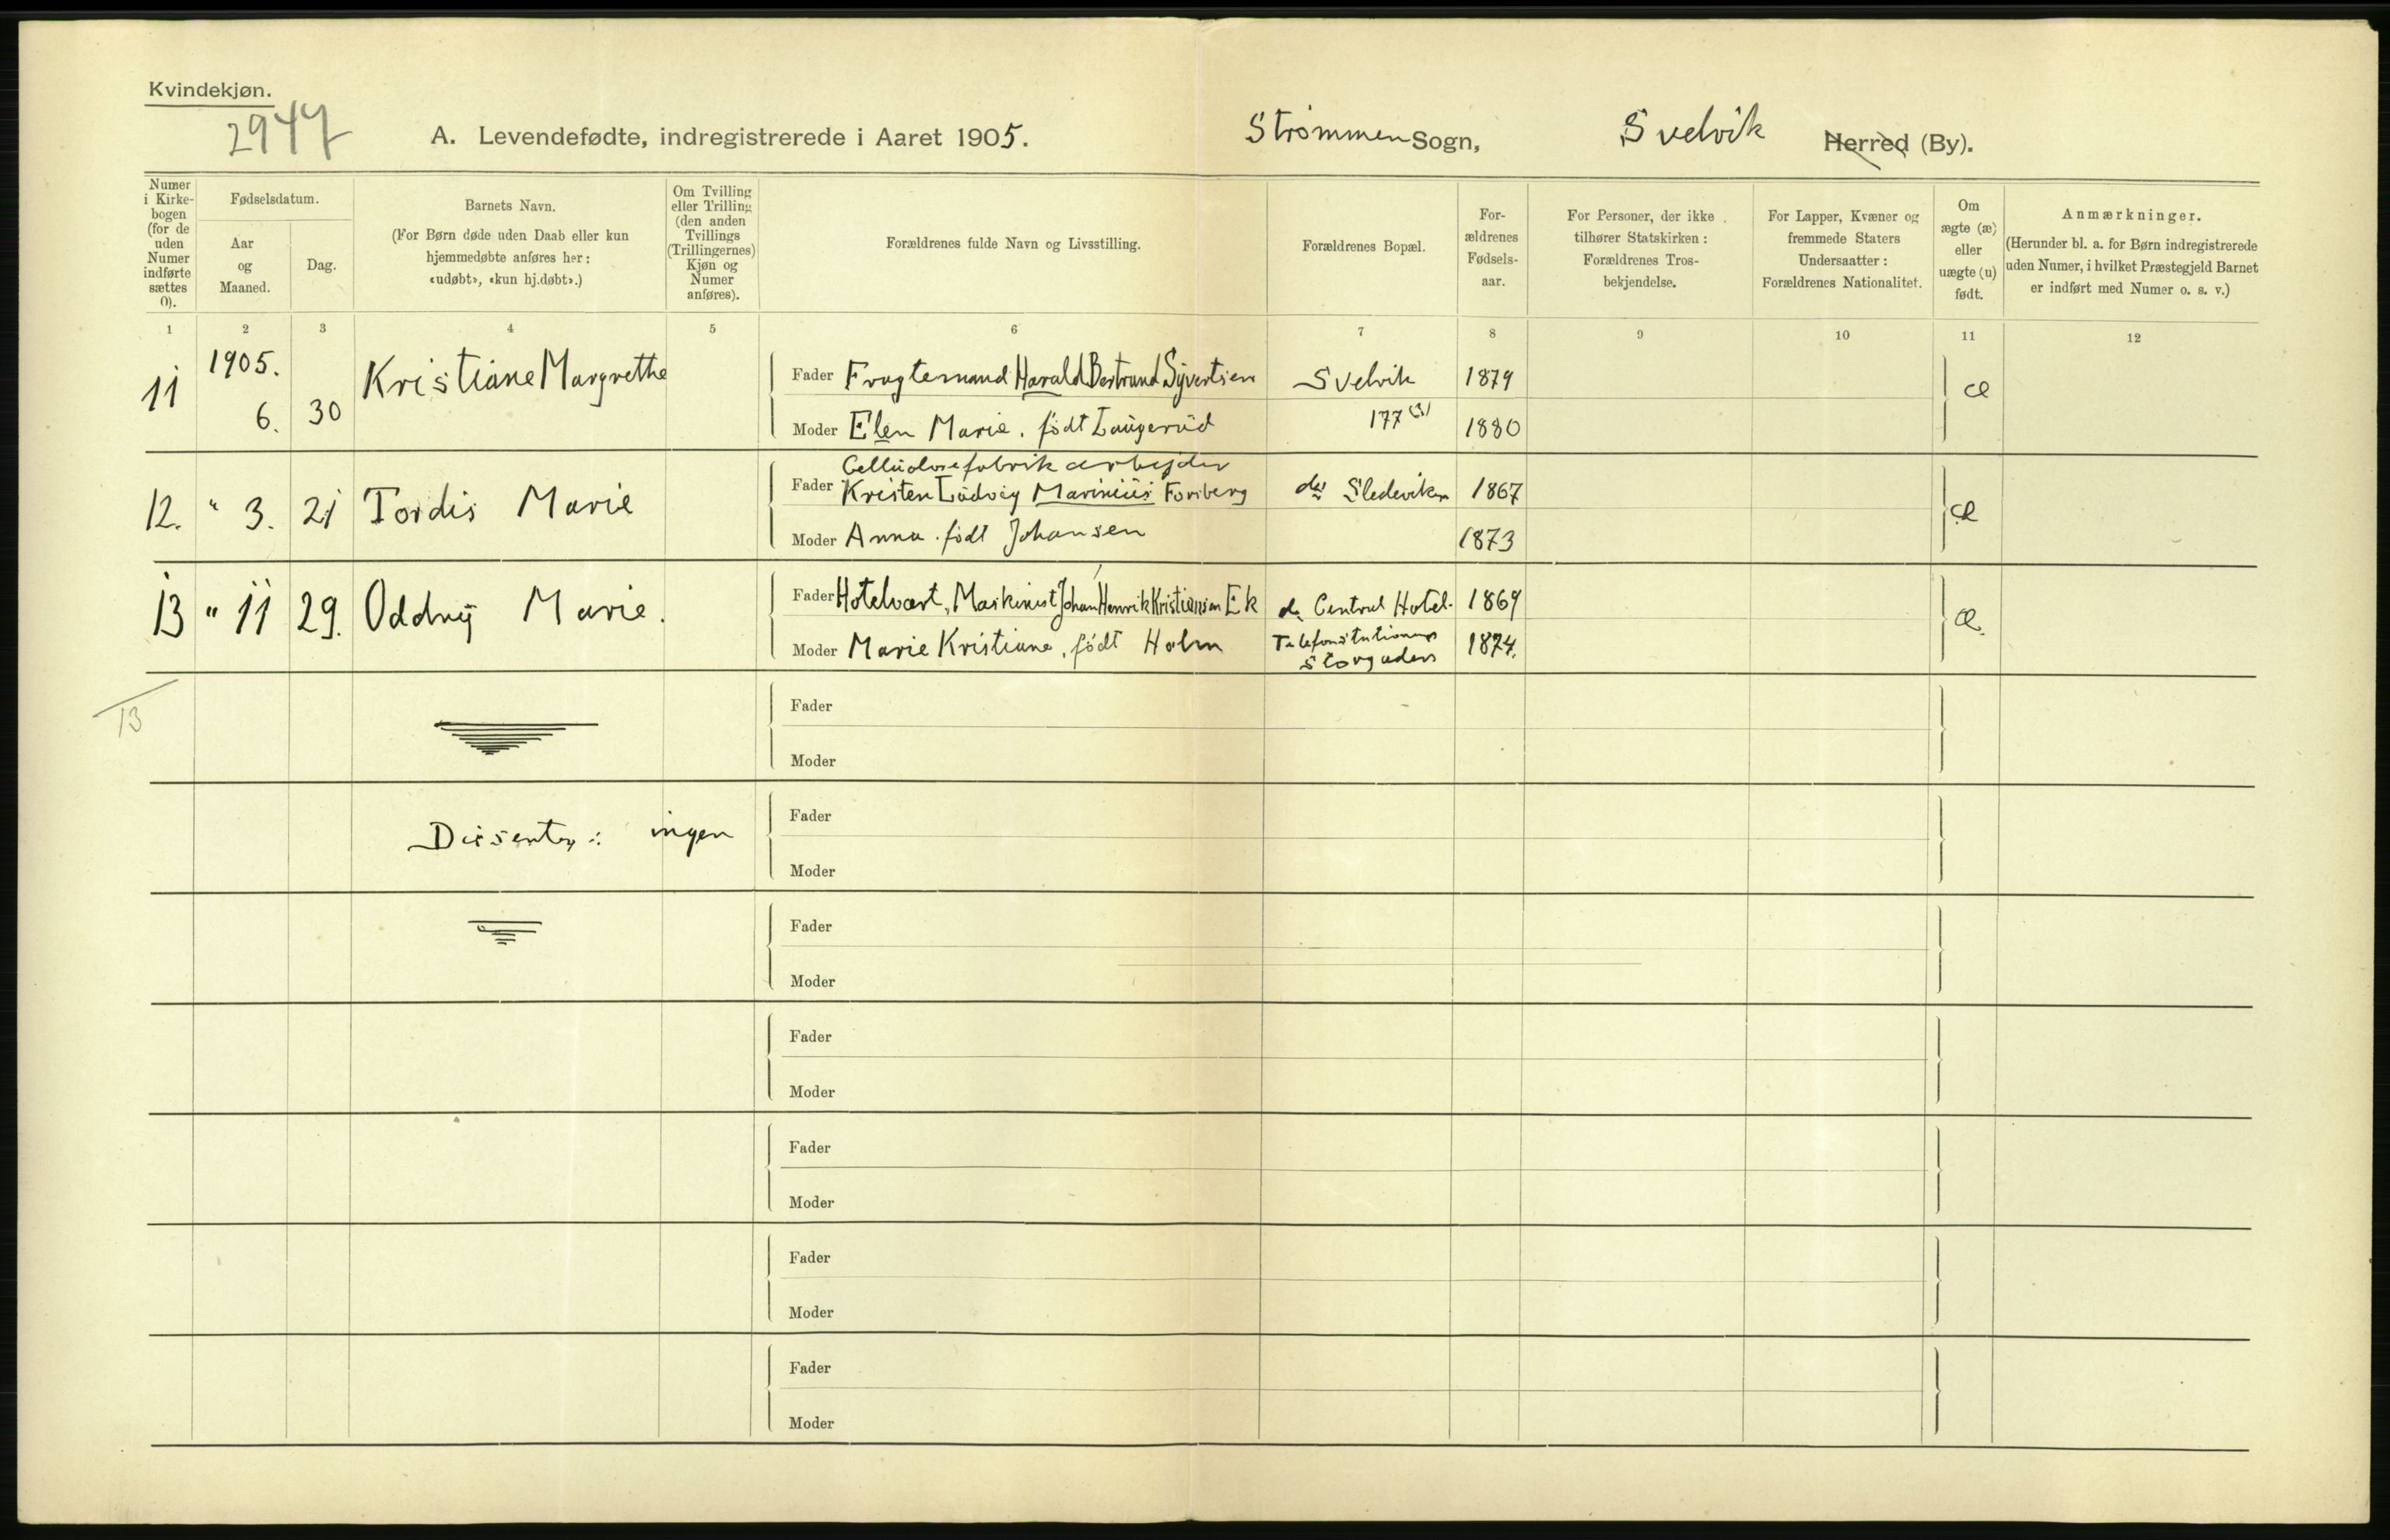 Kvindekjøn.
2947
A. Levendefødte, indregistrerede i Aaret 1905.
Strömmen Sogn, Svelvik Herred (By).
Numer i Kirkebogen (for de uden Numer indførte sættes 0).
Fødselsdatum.
Aar og Maaned.
Dag.
Barnets Navn.
(For Børn døde uden Daab eller kun hjemmedøbte anføres her: «udøbt», «kun hj.døbt».)
Om Tvilling eller Trilling (den anden Tvillings (Trillingernes) Kjøn og Numer anføres).
Forældrenes fulde Navn og Livsstilling.
Forældrenes Bopæl.
For-ældrenes Fødsels-aar.
For Personer, der ikke tilhører Statskirken: Forældrenes Tros-bekjendelse.
For Lapper, Kvæner og fremmede Staters Undersaatter: Forældrenes Nationalitet.
Om ægte (æ) eller uægte (u) født.
Anmærkninger.
(Herunder bl. a. for Børn indregistrerede uden Numer, i hvilket Præstegjeld Barnet er indført med Numer o. s. v.)
1 2 3 4 5 6 7 8 9 10 11 12
11 1905. 6. 30 Kristiane Margrethe Fader Fragtemand Harald Bertrand Syvertsen Svelvik 1879 æ
Moder Elen Marie. född Laugerud 177 1880
Cellulosefabrikarbejder
12. " 3. 21 Tordis Marie Fader Kristen Ludvig Marinius Forsberg do Sledeviken 1867 æ
Moder Anna. född Johansen 1873
13 " 11 29. Oddny Marie. Fader Hotelvært, Maskinist Johan Henrik Kristiansen Ek do Central Hotel. 1869 æ.
Moder Marie Kristiane, född Holm Telefonstationen 1874.
Storgaden
13
Fader
Moder
Dissenter: ingen Fader
Moder
Fader
Moder
Fader
Moder
Fader
Moder
Fader
Moder
Fader
Moder